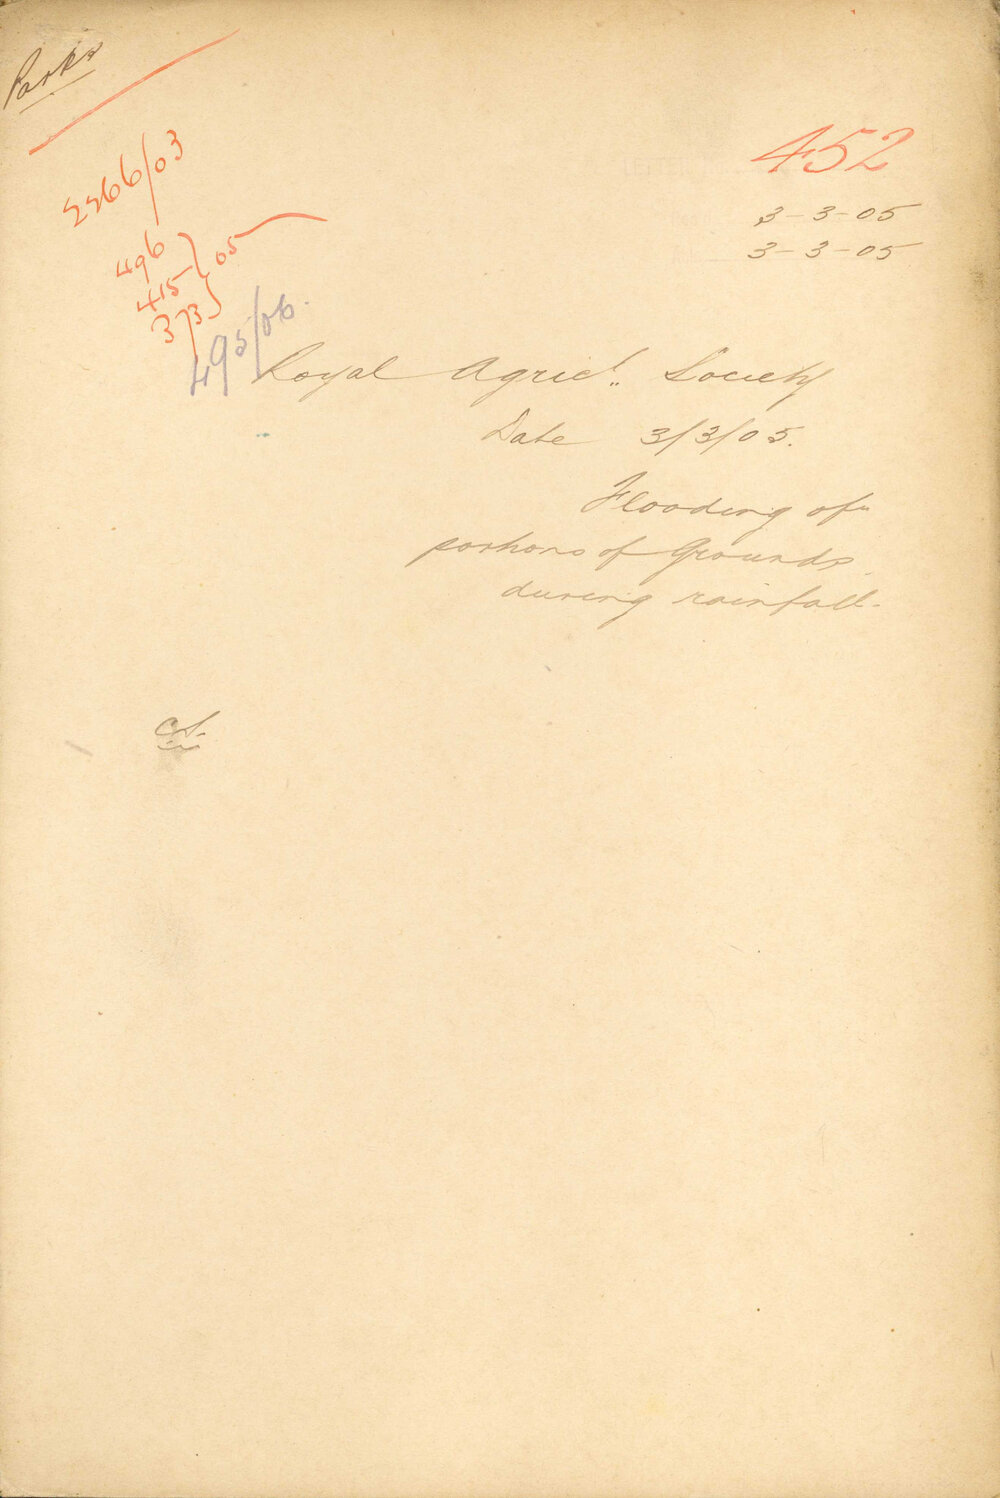 Parks
452
2266/03
3-3-05
3-3-05
496
415 } 05
373
495/06.
Royal Agricl. Society
Date 3/3/05.
Flooding of
portions of Grounds
during rainfall.